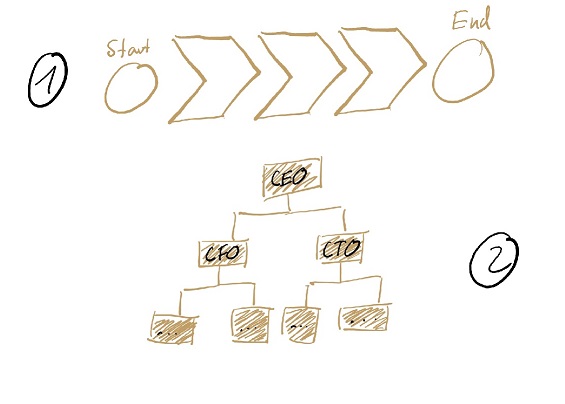 Start
End
1
CEO
CFO
CTO
2
...
...
...
...